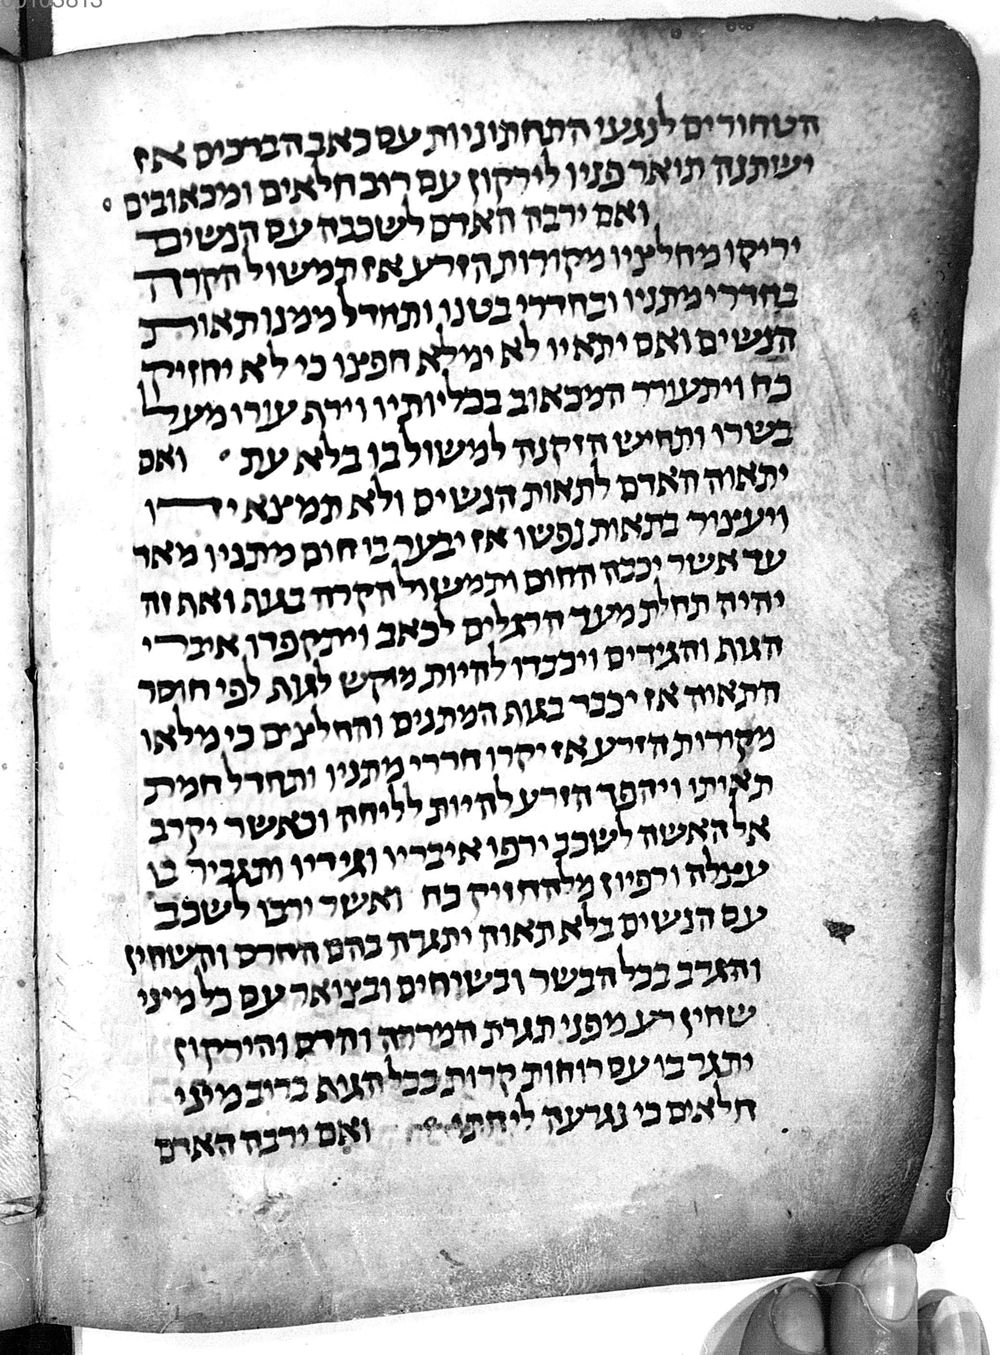 הטחורים לנגעי התחתוניות עם כאב הברכים אז
ישתנה תואר פניו לירקון עם רוב חלאים ומכאובים
ואם ירבה האדם לשכבה עם הנשים
יריקו מחלציו מקורות הזרע אז תמשול הקרה
בחדרי מתניו ובחדרי בטנו ותחדל ממנו תאות
הנשים ואם יתאיו לא ימלא חפצו כי לא יחזיק
כח ויתעורר המכאוב בכליותיו וירק עורו מעל
בשרו ותחיש הזקנה למשול בו בלא עת ואם
יתאוה האדם לתאות הנשים ולא תמצא ידו
ויעצור בתאות נפשו אז יבער בו חום מתניו מאד
עד אשר יכבה החום ותמשול הקרה בגות ואת זה
יהיה תחלת מעד הרגלים לכאב ויתקפדו איברי
הגות והגידים ויכבדו להיות מוקש לגות לפי חוסר
התאוה אז יכבד בגות המתנים והחלצים כי מלאו
מקורות הזרע אז יקרו חדרי מתניו ותחדל חמת
תאותו ויהפך הזרע להיות לליחה וכאשר יקרב
אל האשה לשכב ירפו איבריו וגידיו ותגביר בו
עצלה ורפיון מלהחזיק כח ואשר ירבו לשכב
עם הנשים בלא תאוה יתגרה בהם החרס והשחין
והגרב בכל הבשר ובשיחים ובצואר עם כל מיני
שחין רע מפני תגרת המררה והדם והירקון
יתגר בו עם רוחות קרות בכל הגוא ברוב מיני
חלאים כי נגרעה ליחתו ואם ירבה האדם